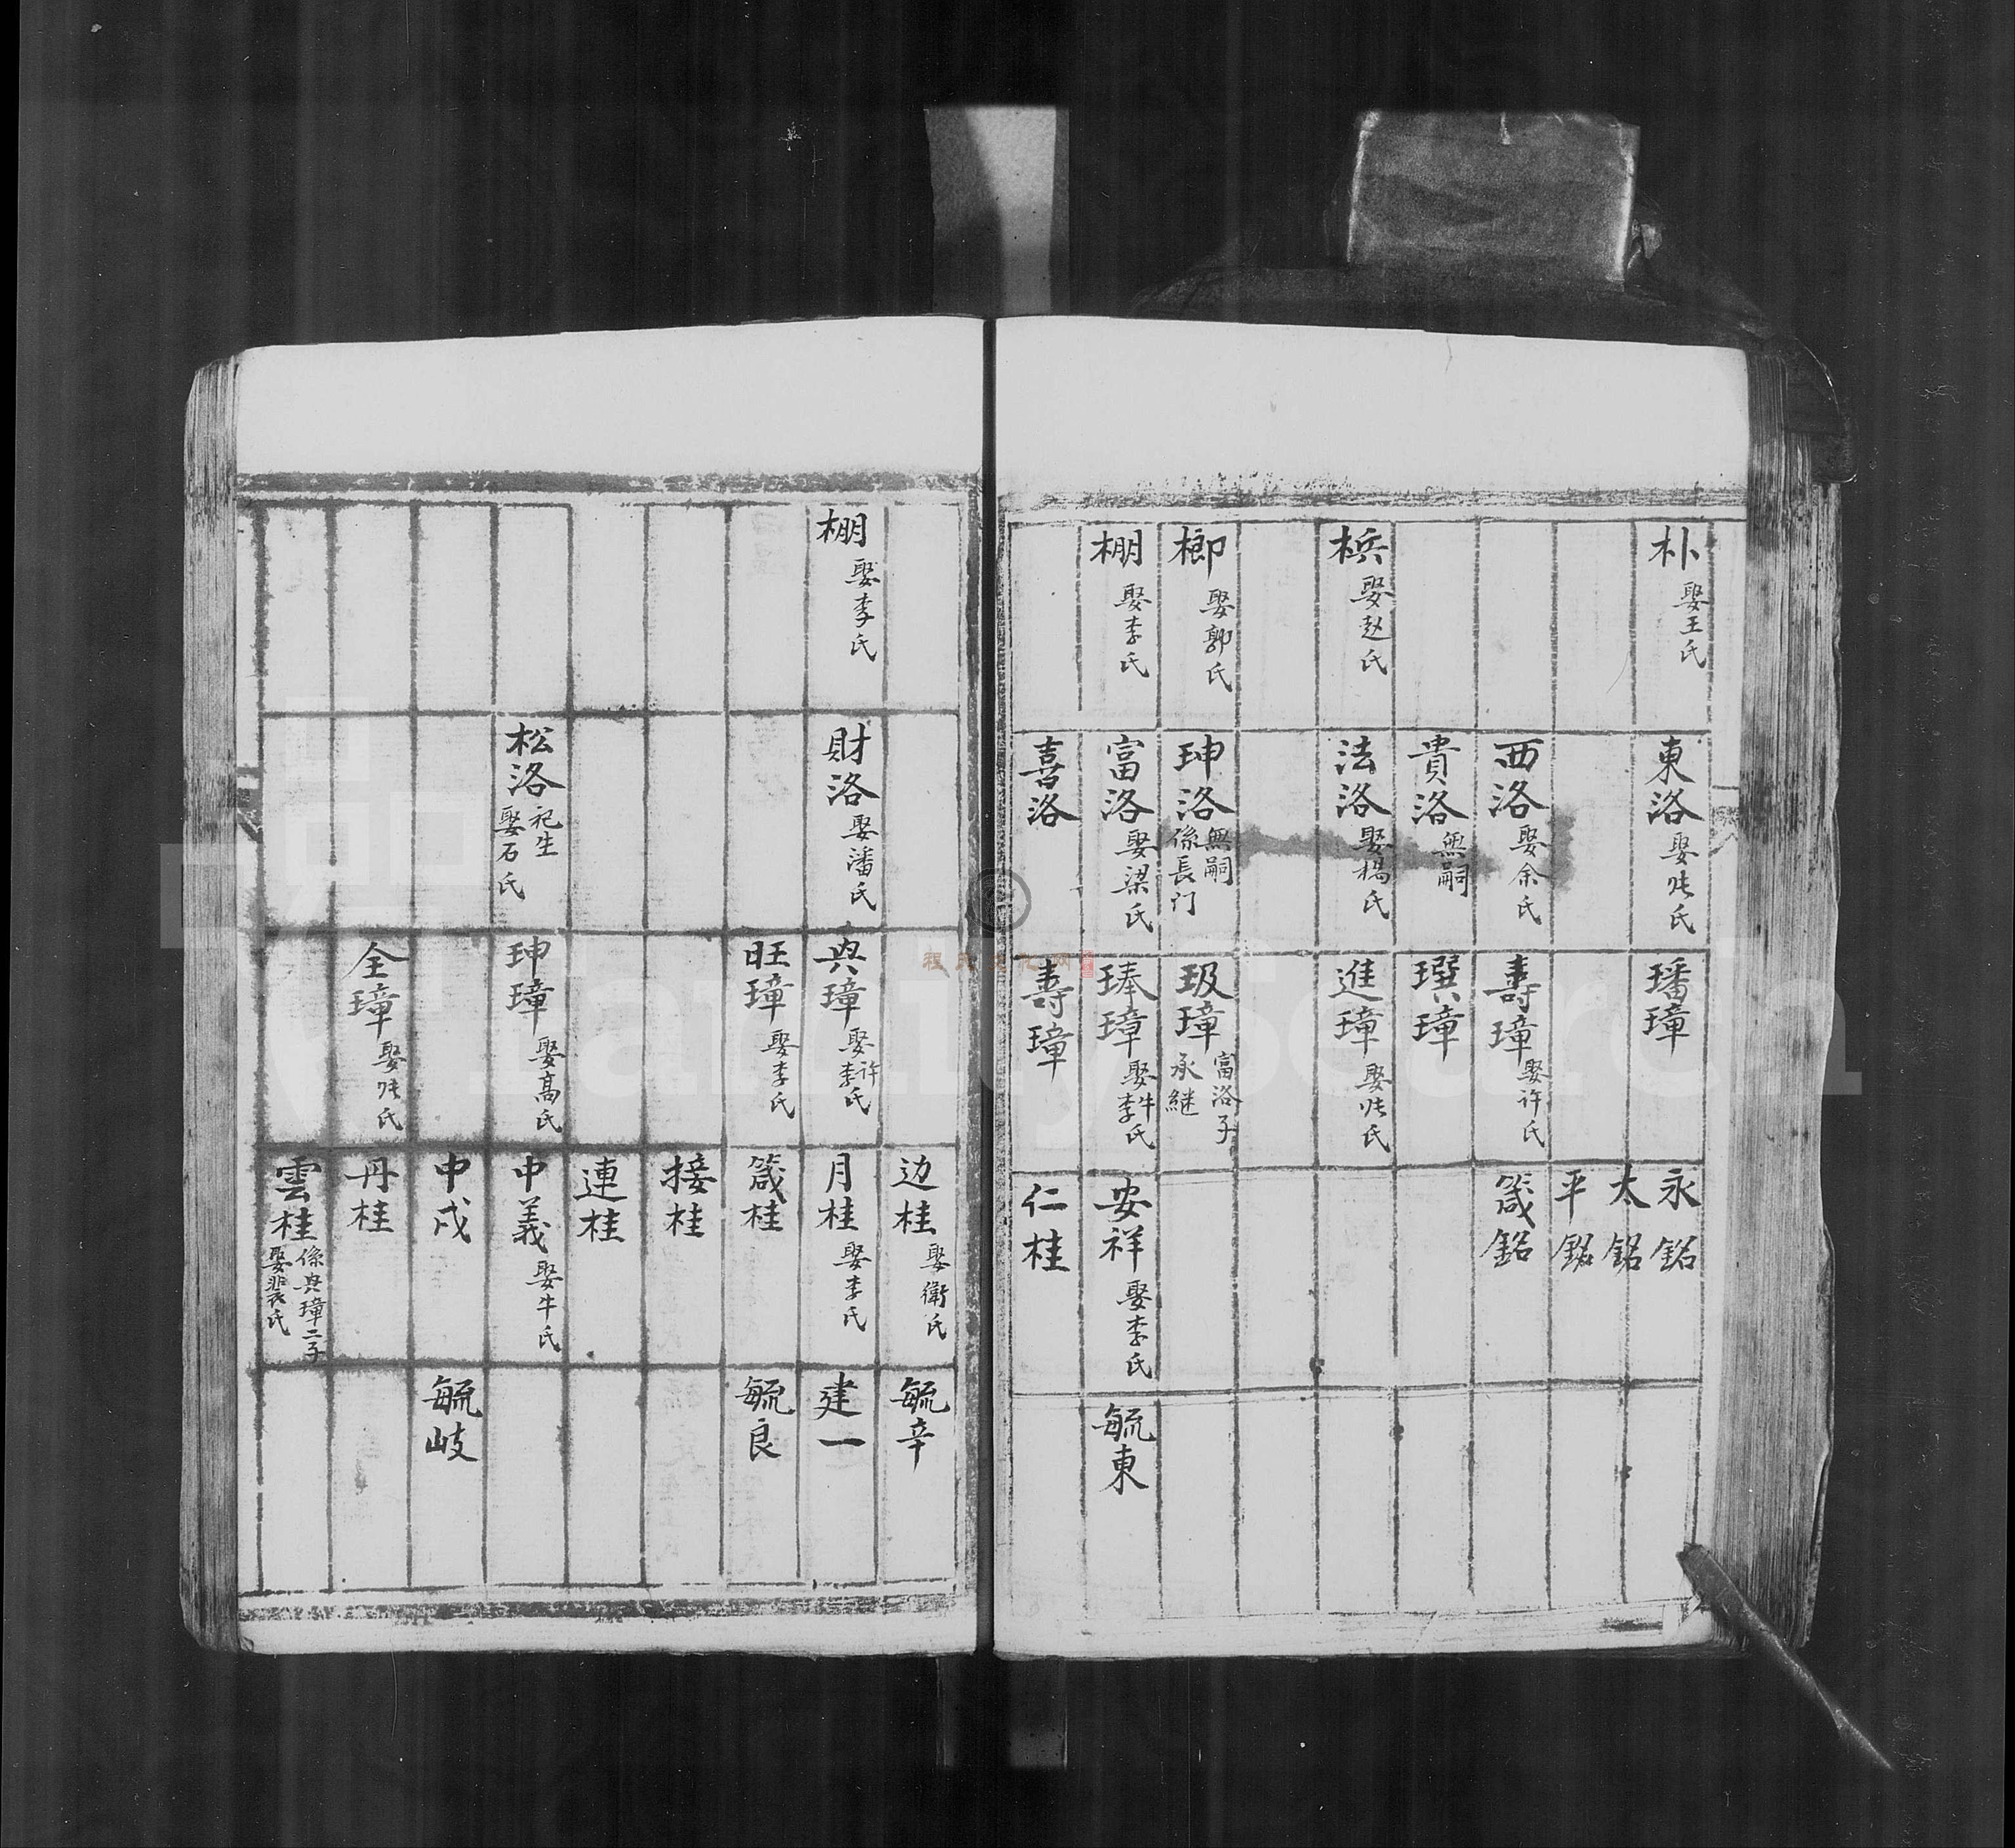 朴 娶王氏
梹 娶赵氏
榔 娶郭氏
棚 娶李氏
東洛 娶张氏
西洛 娶余氏
貴洛 無嗣
法洛 娶楊氏
珅洛 無嗣
係長门
富洛 娶梁氏
喜洛
璠璋
壽璋 娶许氏
璵璋
進璋 娶张氏
玻璋 富洛子
承継
琫璋 娶牛李氏
壽璋
永銘
太銘
平銘
箴銘
安祥 娶李氏
仁桂
毓東
棚 娶李氏
財洛 娶潘氏
松洛 祀生
娶石氏
典璋 娶许李氏
旺璋 娶李氏
珅璋 娶高氏
全璋 娶张氏
边桂 娶衛氏
月桂 娶李氏
箴桂
接桂
連桂
中義 娶牛氏
中戍
丹桂
雲桂 係典璋二子
娶裴氏
毓辛
建一
毓良
毓岐
程氏文化网
FamilySearch